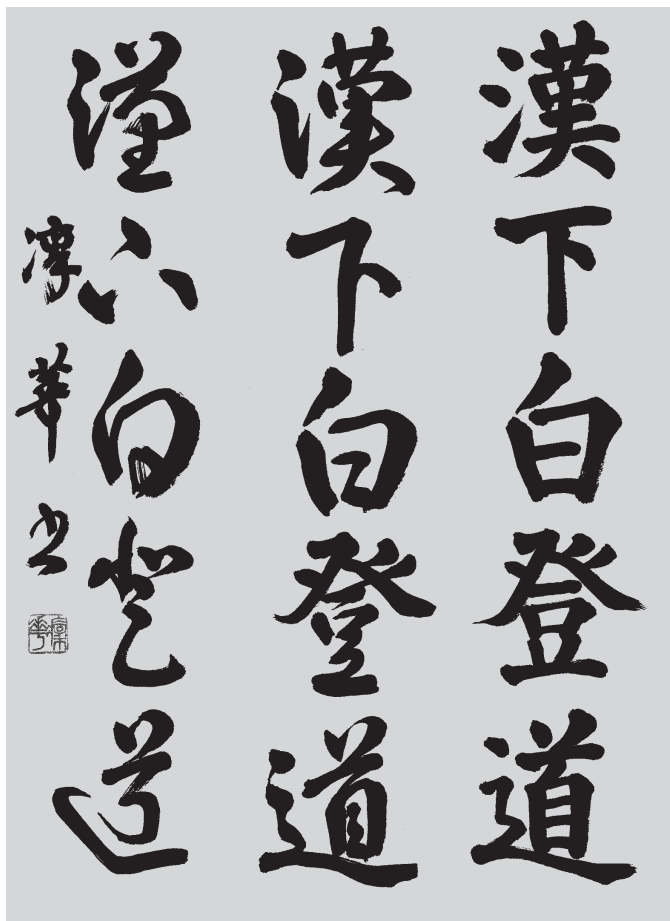 漢下白登道
漢下白登道
漢下白登道
華書